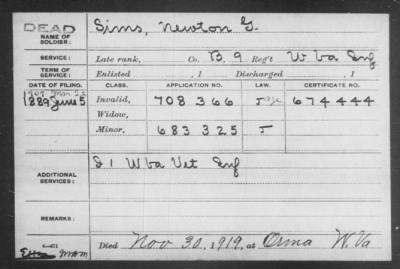 DEAD
NAME OF SOLDIER: Sims, Newton G.
SERVICE: Late rank, Co. B, 9 Reg't W Va Inf
TERM OF SERVICE: Enlisted , 1 Discharged , 1
DATE OF FILING. CLASS. APPLICATION NO. LAW. CERTIFICATE NO.
1889 June 5 Invalid, 708 366 674444
Widow,
Minor, 683 325
ADDITIONAL SERVICES: W Va Vet Inf
REMARKS:
Died Nov 30, 1919, at Orma W. Va